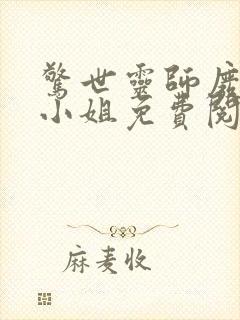 驚世靈師廢
小姐免費閱
麻麦收